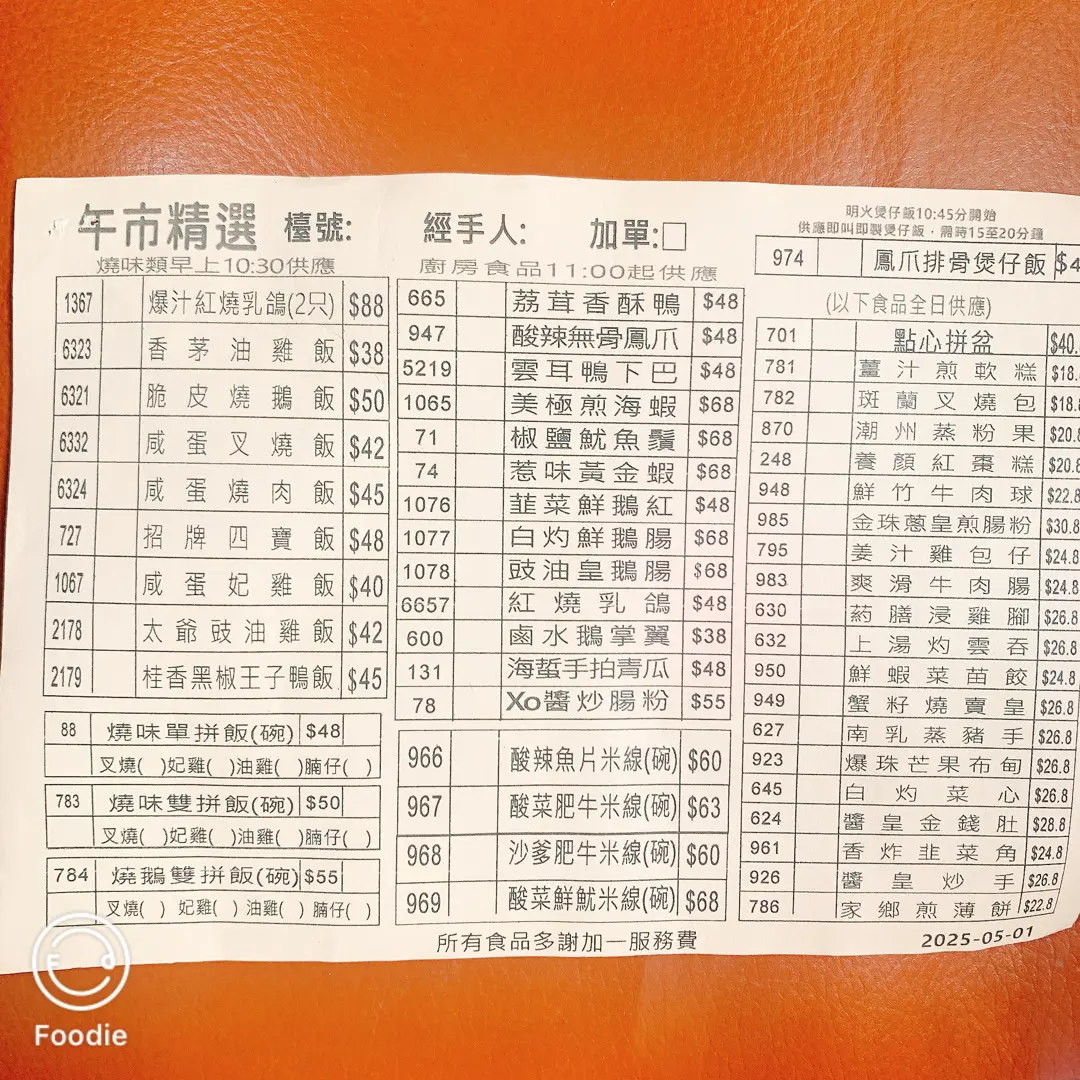 午市精選 檯號: 經手人: 加單:□
燒味類早上10:30供應
1367 爆汁紅燒乳鴿(2只) $88
6323 香茅油雞飯 $38
6321 脆皮燒鵝飯 $50
6332 咸蛋叉燒飯 $42
6324 咸蛋燒肉飯 $45
727 招牌四寶飯 $48
1067 咸蛋妃雞飯 $40
2178 太爺豉油雞飯 $42
2179 桂香黑椒王子鴨飯 $45
88 燒味單拼飯(碗) $48
叉燒( )妃雞( )油雞( )腩仔( )
783 燒味雙拼飯(碗) $50
叉燒( )妃雞( )油雞( )腩仔( )
784 燒鵝雙拼飯(碗) $55
叉燒( ) 妃雞( )油雞( )腩仔( )
廚房食品11:00起供應
665 荔茸香酥鴨 $48
947 酸辣無骨鳳爪 $48
5219 雲耳鴨下巴 $48
1065 美極煎海蝦 $68
71 椒鹽魷魚鬚 $68
74 惹味黃金蝦 $68
1076 韮菜鮮鵝紅 $48
1077 白灼鮮鵝腸 $68
1078 豉油皇鵝腸 $68
6657 紅燒乳鴿 $48
600 鹵水鵝掌翼 $38
131 海蜇手拍青瓜 $48
78 Xo醬炒腸粉 $55
966 酸辣魚片米線(碗) $60
967 酸菜肥牛米線(碗) $63
968 沙爹肥牛米線(碗) $60
969 酸菜鮮魷米線(碗) $68
所有食品多謝加一服務費
明火煲仔飯10:45分開始
供應即叫即製煲仔飯，需時15至20分鐘
974 鳳爪排骨煲仔飯 $4
(以下食品全日供應)
701 點心拼盆 $40.
781 薑汁煎軟糕 $18.8
782 斑蘭叉燒包 $18.8
870 潮州蒸粉果 $20.8
248 養顏紅棗糕 $20.8
948 鮮竹牛肉球 $22.8
985 金珠蔥皇煎腸粉 $30.8
795 姜汁雞包仔 $24.8
983 爽滑牛肉腸 $24.8
630 葯膳浸雞腳 $26.8
632 上湯灼雲吞 $26.8
950 鮮蝦菜苗餃 $24.8
949 蟹籽燒賣皇 $26.8
627 南乳蒸豬手 $26.8
923 爆珠芒果布甸 $26.8
645 白灼菜心 $26.8
624 醬皇金錢肚 $28.8
961 香炸韭菜角 $24.8
926 醬皇炒手 $26.8
786 家鄉煎薄餅 $22.8
2025-05-01
Foodie